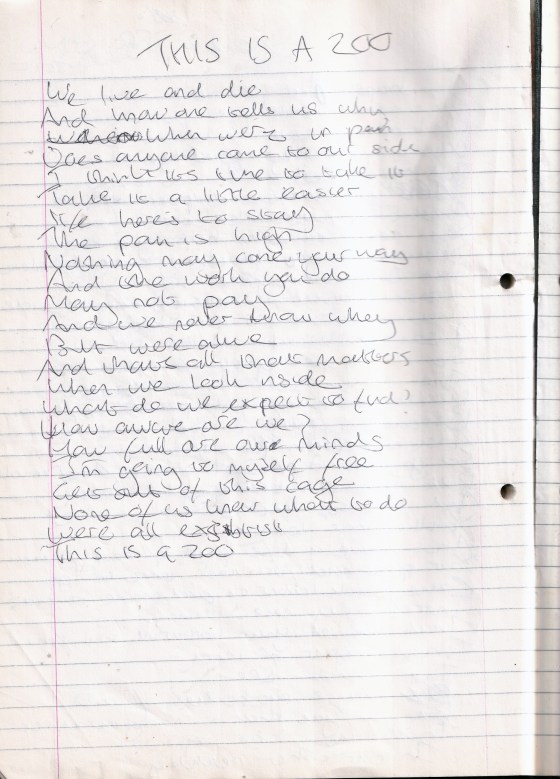 THIS IS A ZOO
We live and die
And know one tells us why
When were in pain
Does anyone come to our side
I think its time to take it
Take it a little easier
life here's to stay
The pain is high
Nothing may come your way
And the work you do
May not pay
And we never know why
But were alive
And thats all that matters
When we look inside
What do we expect to find?
How aware are we?
How full are our minds
I'm going to myself free
Get out of this cage
None of us know what to do
Were all
This is a zoo